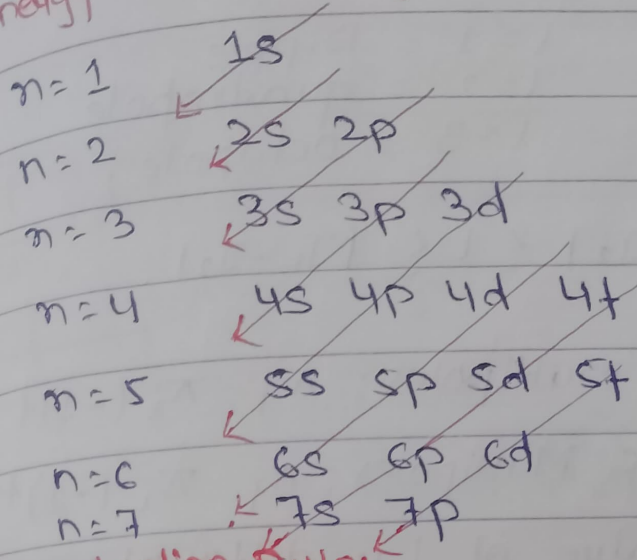 n=1 1s
n=2 2s 2p
n=3 3s 3p 3d
n=4 4s 4p 4d 4f
n=5 5s 5p 5d 5f
n=6 6s 6p 6d
n=7 7s 7p